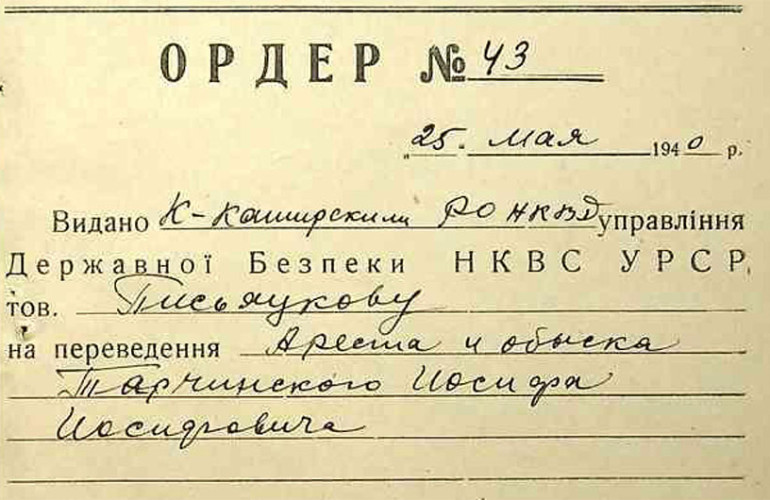 ОРДЕР № 43
"25" мая 1940 р.
Видано К-Каширским РО НКВД управління
Державної Безпеки НКВС УРСР
тов.
на переведення Ареста и обыска
Тарчинского Иосифа
Иосифовича